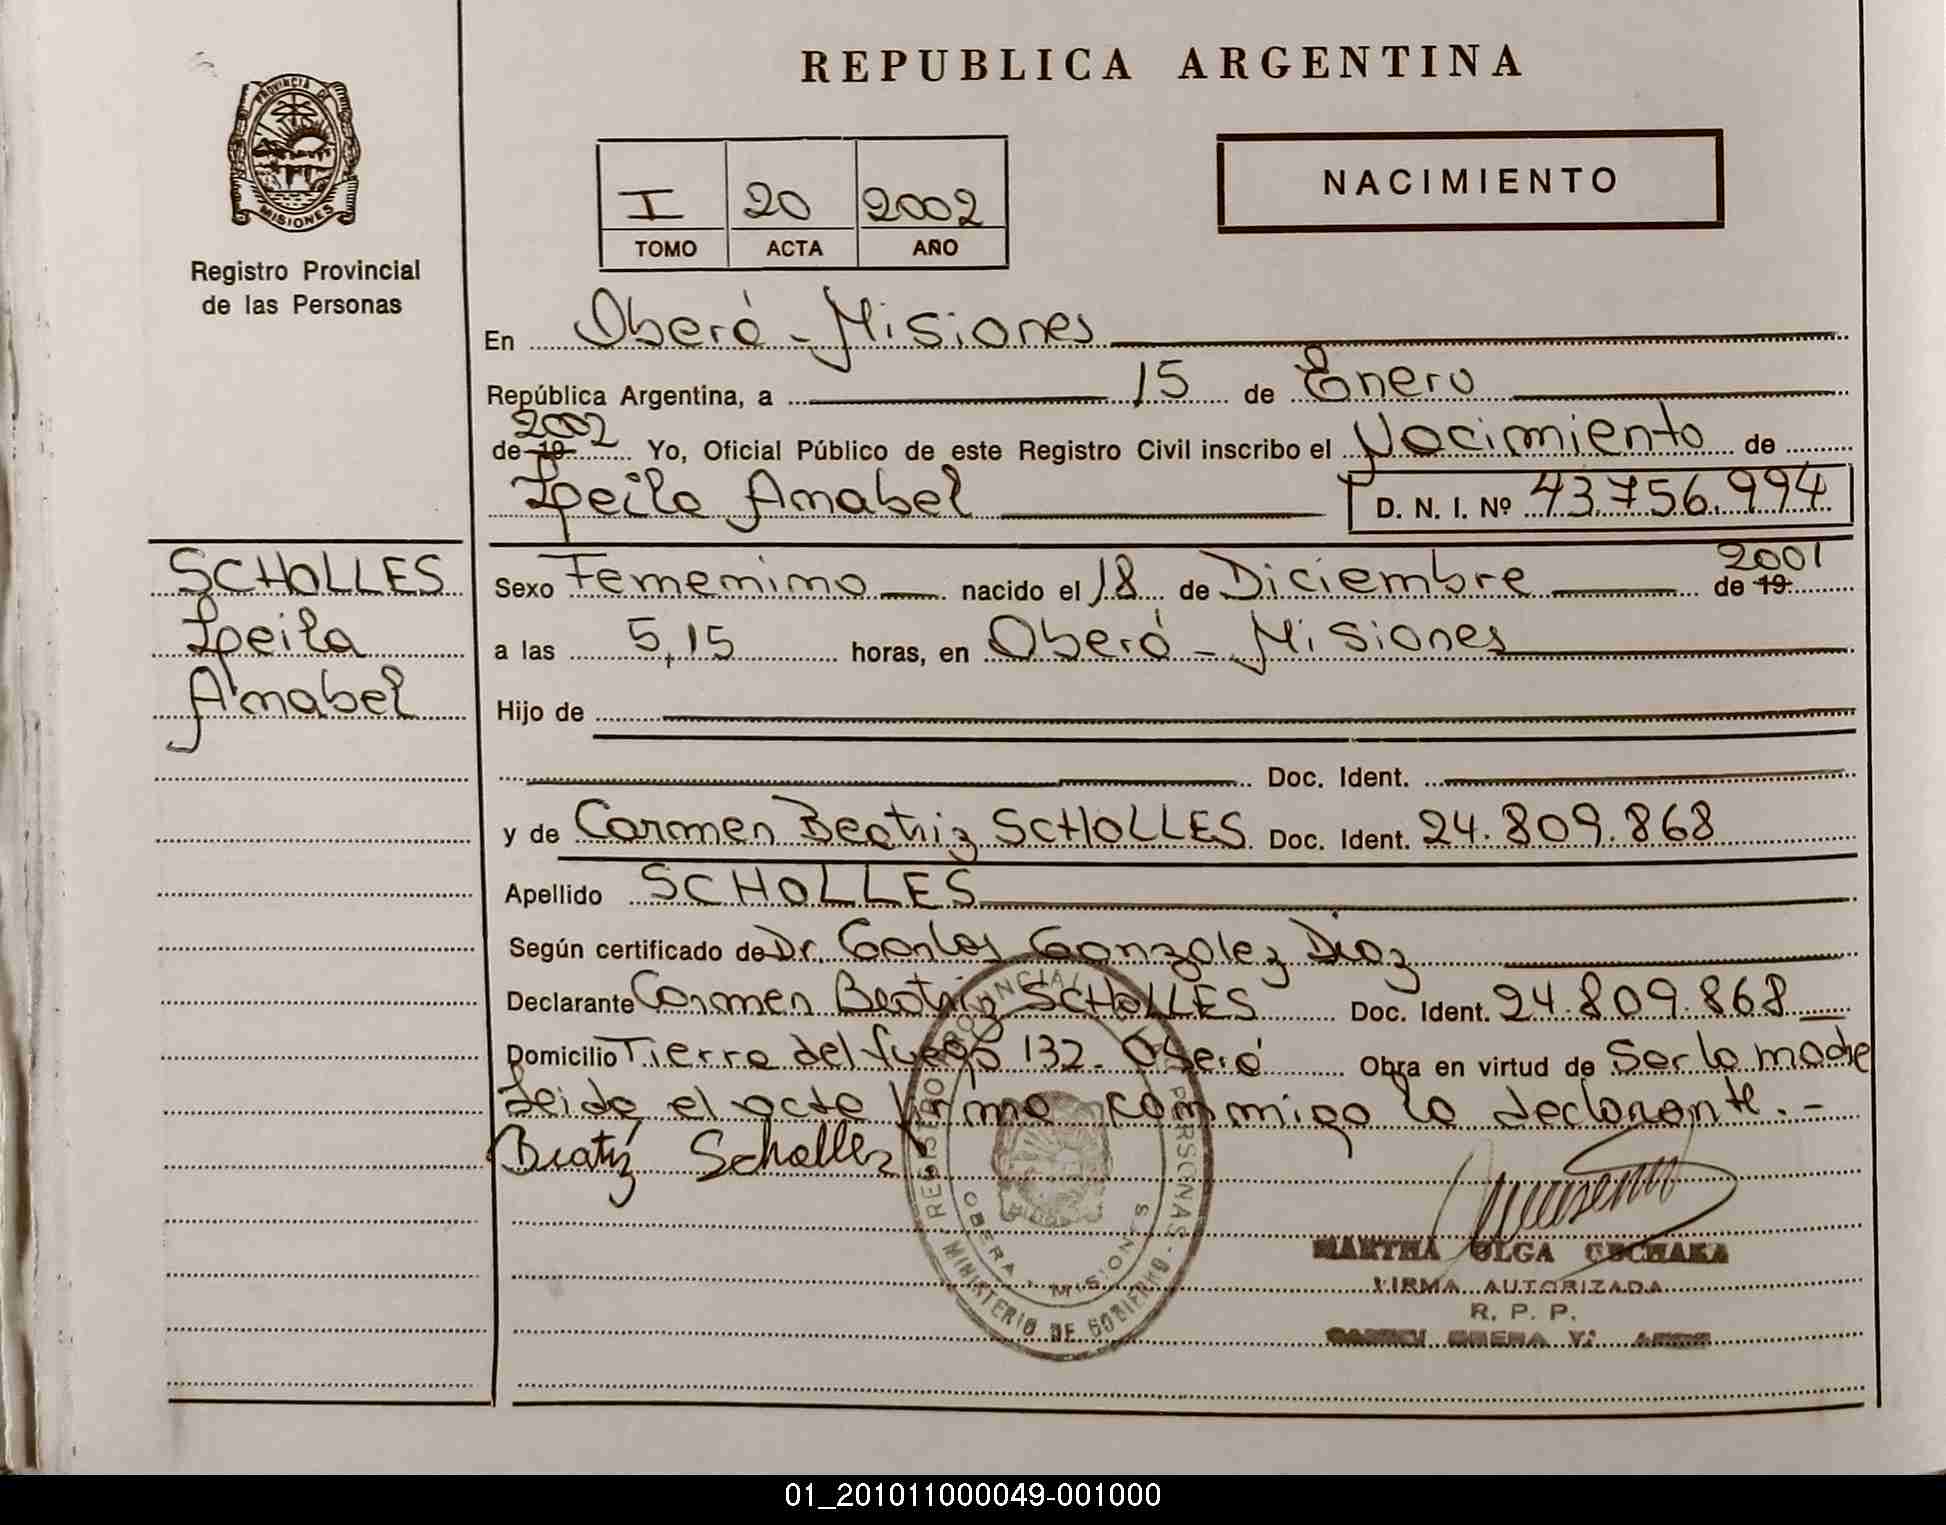 REPUBLICA ARGENTINA
PROVINCIA DE
MISIONES
Registro Provincial
de las Personas
NACIMIENTO
I 20 2002
TOMO ACTA AÑO
En Oberá - Misiones
República Argentina, a 15 de Enero
de 19 2002 Yo, Oficial Público de este Registro Civil inscribo el Nacimiento de
Leila Anabel D. N. I. Nº 43.756.994
SCHOLLES
Leila
Anabel
Sexo Femenino nacido el 18 de Diciembre de 19 2001
a las 5,15 horas, en Oberá - Misiones
Hijo de
Doc. Ident.
y de Carmen Beatriz SCHOLLES Doc. Ident. 24.809.868
Apellido SCHOLLES
Según certificado de Dr. Carlos Gonzalez Diaz
Declarante Carmen Beatriz SCHOLLES Doc. Ident. 24.809.868
Domicilio Tierra del fuego 132. Oberá Obra en virtud de Ser la madre
Leida el acta firma conmigo la declarante.-
Beatriz Scholles
REGISTRO PROVINCIAL PERSONAS - MINISTERIO DE GOBIERNO
OBERA - MISIONES
MARTHA OLGA
FIRMA AUTORIZADA
R. P. P.
01_201011000049-001000